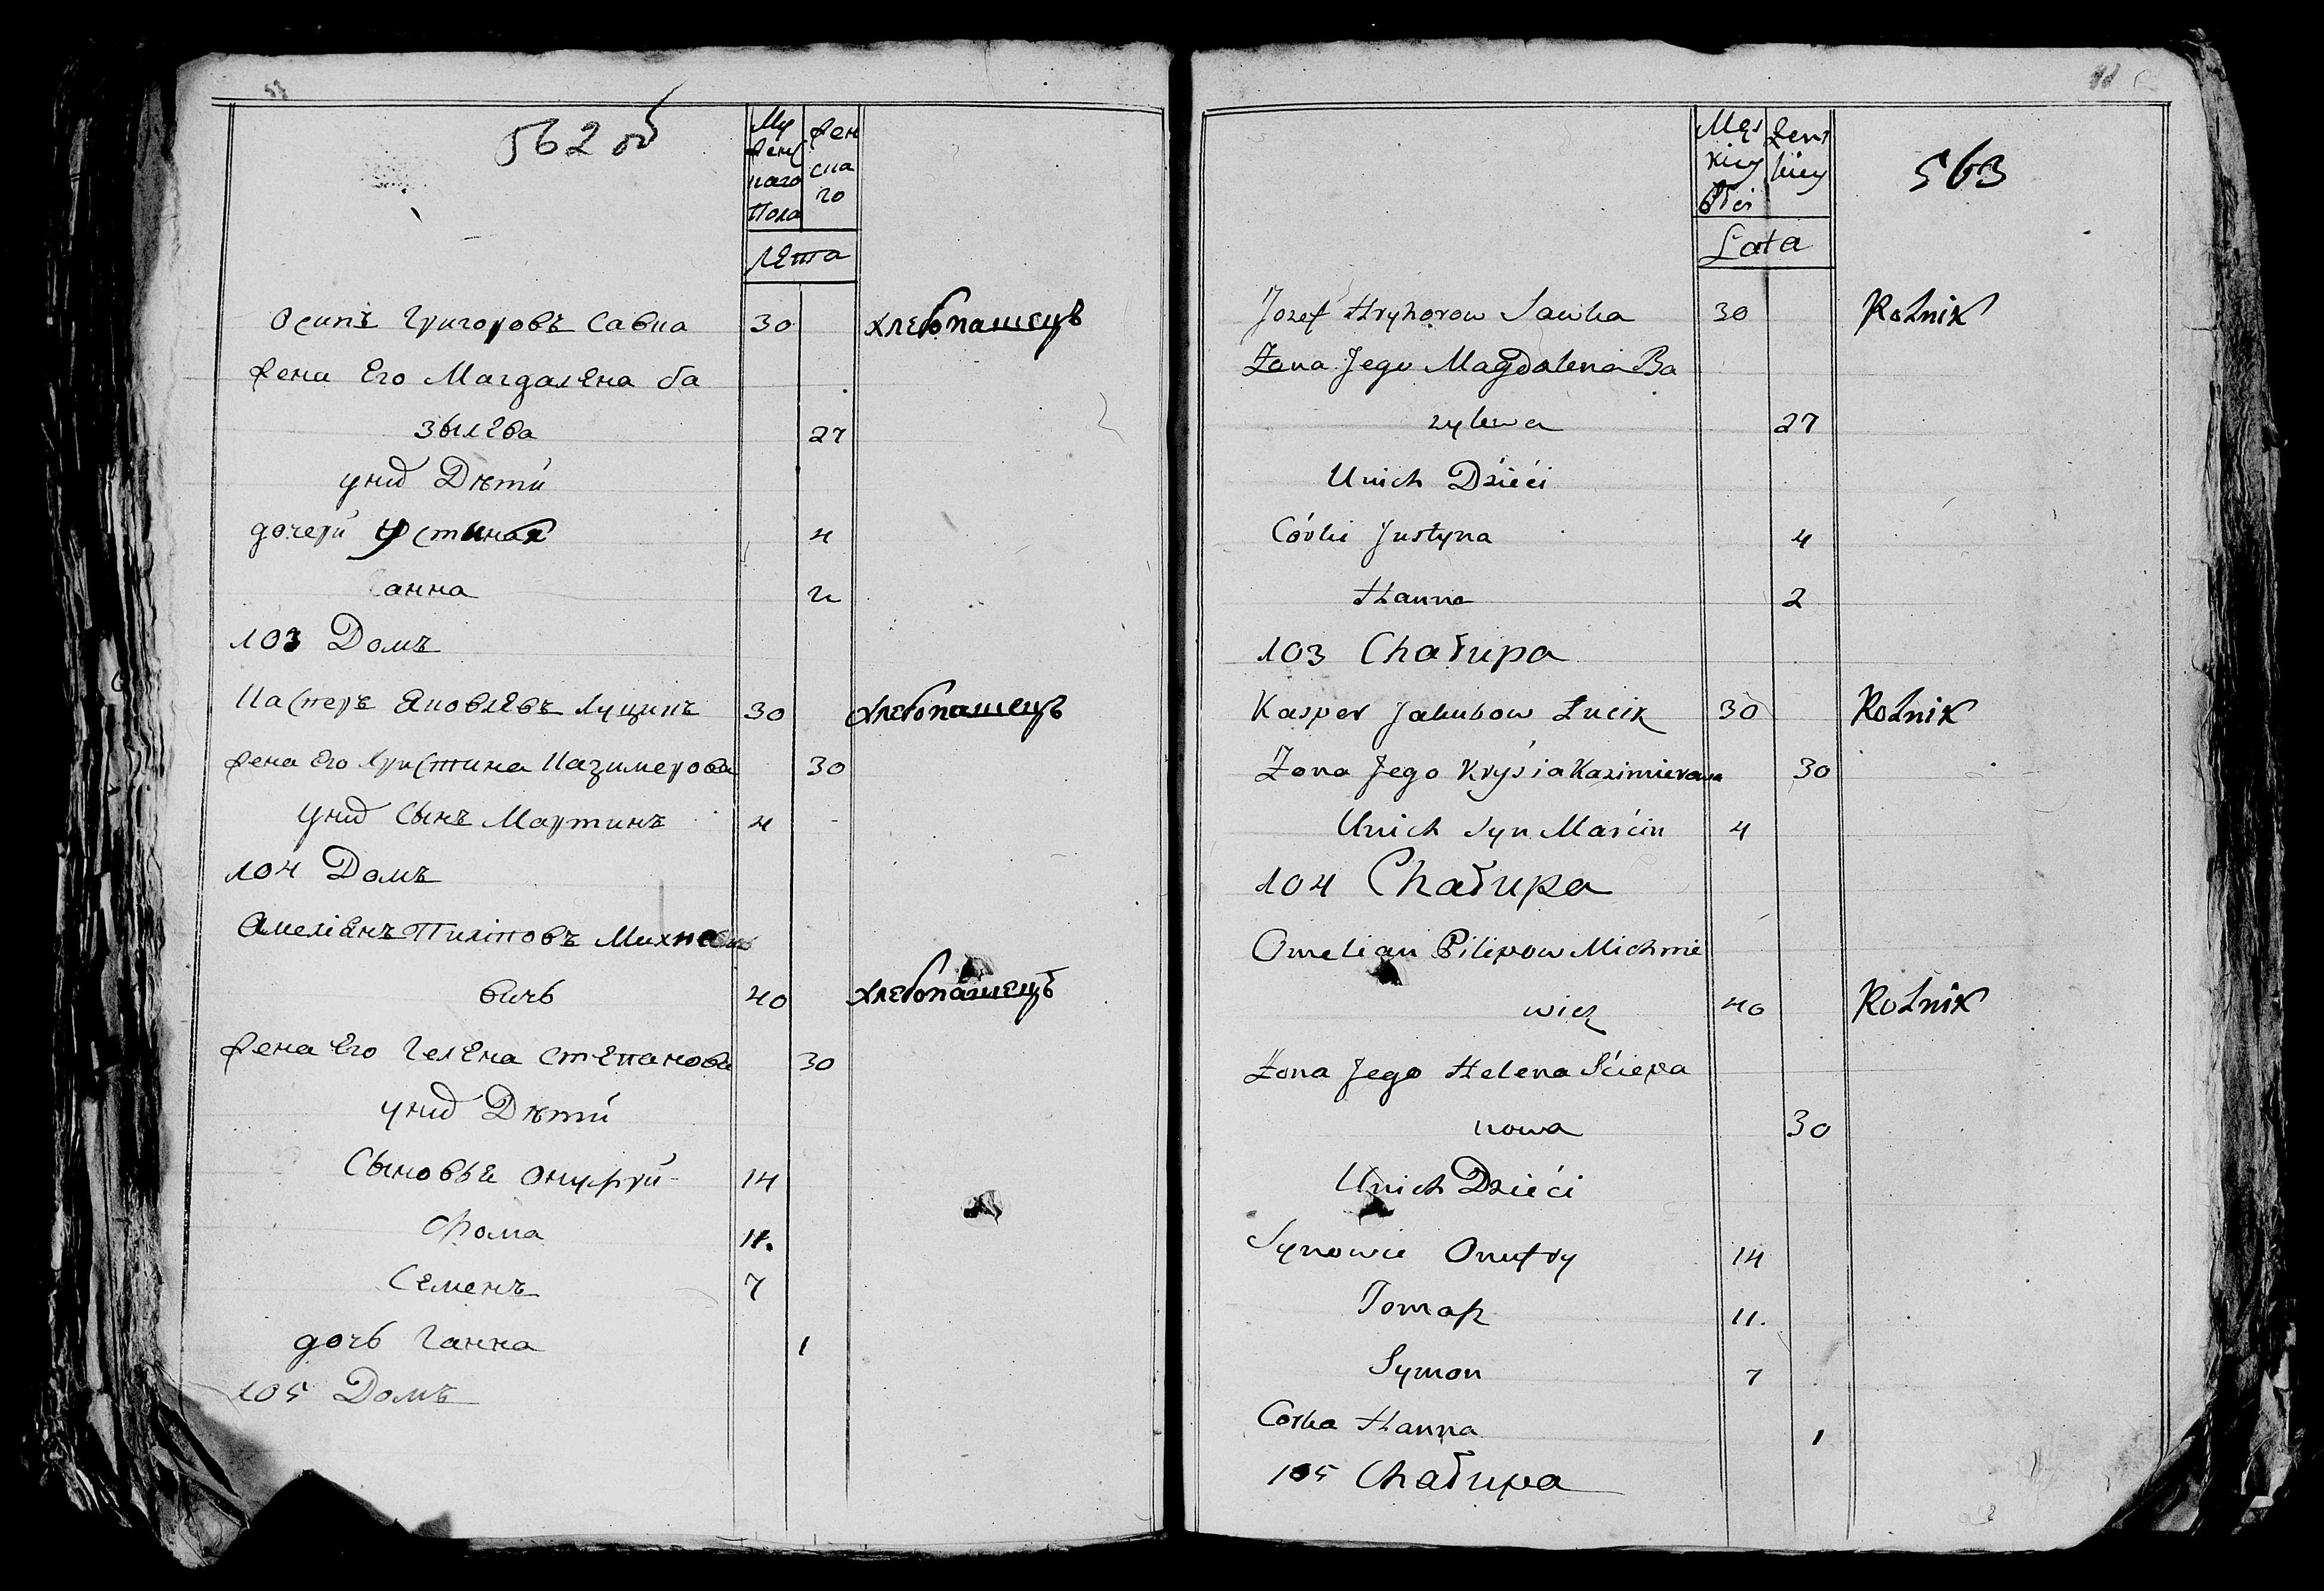 562 об
Му
женс
каго
Пола
жен
ска
го
Лета
Осипъ Григоровъ Савка 30 хлебопашецъ
жена Его Магдалена Ба
зылева 27
у них Дѣти
дочери Устиная 4
анна 2
103 Домъ
Касперъ Яковлевъ Луцикъ 30 хлебопашецъ
жена Его Христина Казимерова 30
у них Сынъ Мартинъ 4
104 Домъ
Амеліянъ Пиліповъ Михне
вичь 40 хлебопашецъ
жена Его Гелена Степанова 30
у них Дѣти
Сыновья Онуфрий 14
Фома 11.
Семенъ 7
дочь Ганна 1
105 Домъ
563
Męs
kiey
Płci
Żens
kiey
Lata
Jozef Hryhorow Sawka 30 Rolnik
Żona Jego Magdalena Ba
zylewa 27
Unich Dzieći
Córki Justyna 4
Hanna 2
103 Chałupa
Kasper Jakubow Łucik 30 Rolnik
Żona Jego Krysia Kazimierowa 30
Unich Syn Marćin 4
104 Chałupa
Omelian Pilipow Michnie
wicz 40 Rolnik
Żona Jego Helena Śćiepa
nowa 30
Unich Dzieći
Synowie Onufry 14
Tomasz 11.
Symon 7
Corka Hanna 1
105 Chałupa